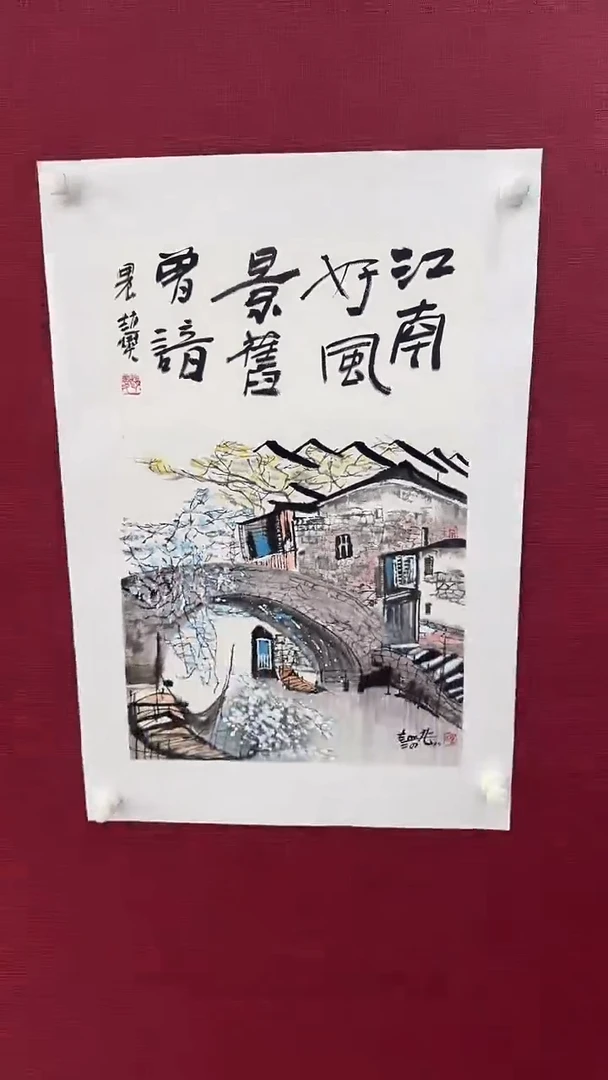 江南
好風
景舊
曾諳